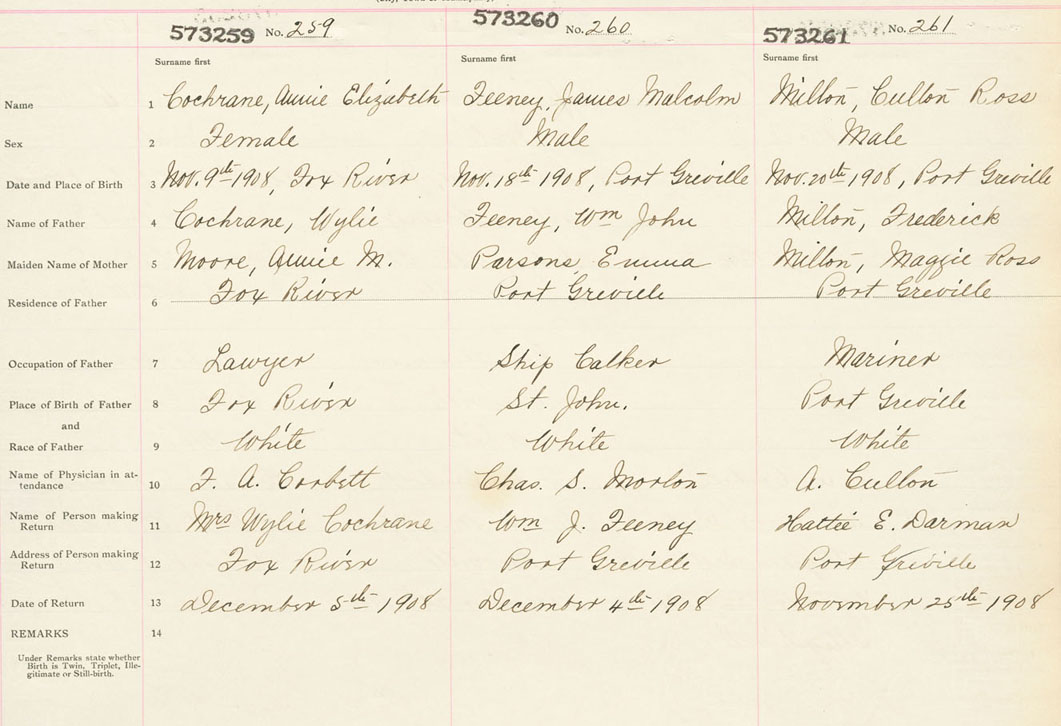 573259 No. 259 573260 No. 260 573261 No. 261
Surname first Surname first Surname first
Name 1 Cochrane, Annie Elizabeth Feeney, James Malcolm Millon, Cullon Ross
Sex 2 Female Male Male
Date and Place of Birth 3 Nov. 9th 1908, Fox River Nov. 18th 1908, Port Greville Nov. 20th 1908, Port Greville
Name of Father 4 Cochrane, Wylie Feeney, Wm John Millon, Frederick
Maiden Name of Mother 5 Moore, Annie M. Parsons Emma Millon, Maggie Ross
Residence of Father 6 Fox River Port Greville Port Greville
Occupation of Father 7 Lawyer Ship Calker Mariner
Place of Birth of Father 8 Fox River St. John. Port Greville
and
Race of Father 9 White White White
Name of Physician in at-
tendance 10 F. A. Corbett Chas. S. Morton A. Cullon
Name of Person making
Return 11 Mrs Wylie Cochrane Wm J. Feeney Hattie E. Darman
Address of Person making
Return 12 Fox River Port Greville Port Greville
Date of Return 13 December 5th 1908 December 4th 1908 November 25th 1908
REMARKS 14
Under Remarks state whether
Birth is Twin, Triplet, Ille-
gitimate or Still-birth.